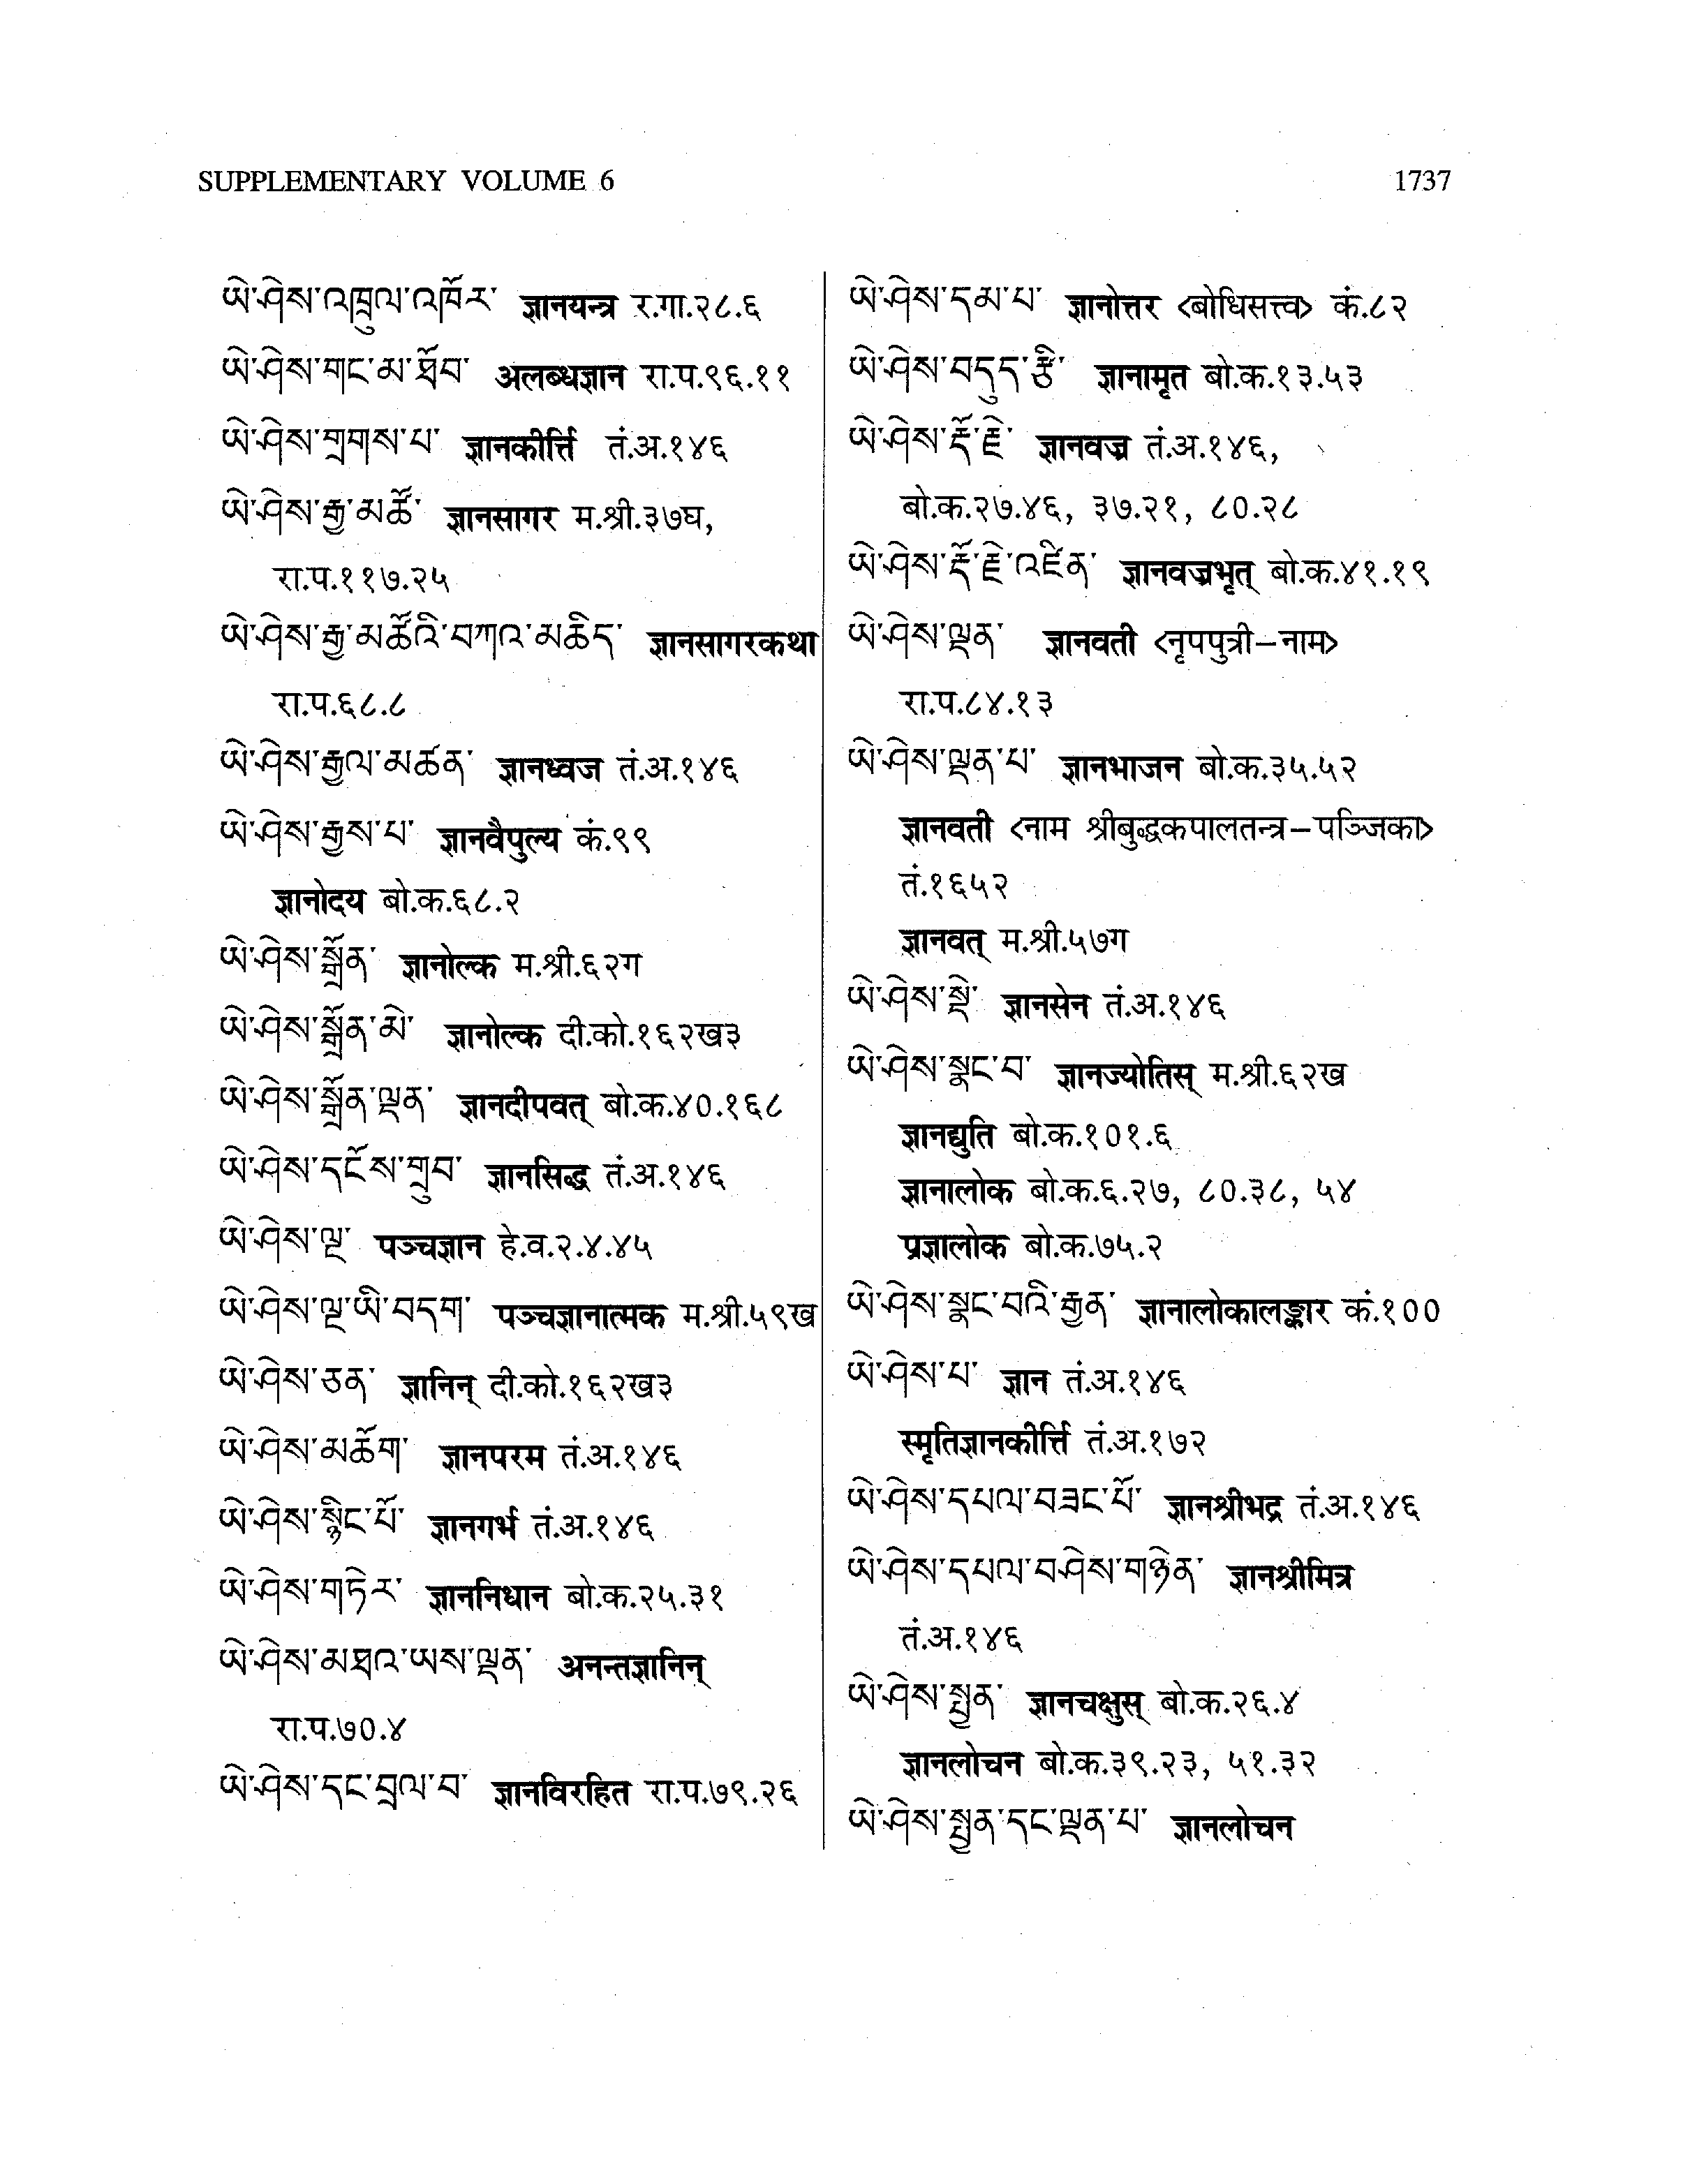 SUPPLEMENTARY VOLUME 6 1737
ཡེ་ཤེས་འཁྲུལ་འཁོར་ ज्ञानयन्त्र र.गा.२८.६
ཡེ་ཤེས་གང་མ་ཐོབ་ अलब्धज्ञान रा.प.९६.११
ཡེ་ཤེས་གྲགས་པ་ ज्ञानकीर्त्ति तं.अ.१४६
ཡེ་ཤེས་རྒྱ་མཚོ་ ज्ञानसागर म.श्री.३७घ,
रा.प.११७.२५
ཡེ་ཤེས་རྒྱ་མཚོའི་བཀའ་མཆིད་ ज्ञानसागरकथा
रा.प.६८.८
ཡེ་ཤེས་རྒྱལ་མཚན་ ज्ञानध्वज तं.अ.१४६
ཡེ་ཤེས་རྒྱས་པ་ ज्ञानवैपुल्य कं.९९
ज्ञानोदय बो.क.६८.२
ཡེ་ཤེས་སྒྲོན་ ज्ञानोल्क म.श्री.६२ग
ཡེ་ཤེས་སྒྲོན་མེ་ ज्ञानोल्क दी.को.१६२ख३
ཡེ་ཤེས་སྒྲོན་ལྡན་ ज्ञानदीपवत् बो.क.४०.१६८
ཡེ་ཤེས་དངོས་གྲུབ་ ज्ञानसिद्ध तं.अ.१४६
ཡེ་ཤེས་ལྔ་ पञ्चज्ञान हे.व.२.४.४५
ཡེ་ཤེས་ལྔ་ཡི་བདག་ पञ्चज्ञानात्मक म.श्री.५९ख
ཡེ་ཤེས་ཅན་ ज्ञानिन् दी.को.१६२ख३
ཡེ་ཤེས་མཆོག་ ज्ञानपरम तं.अ.१४६
ཡེ་ཤེས་སྙིང་པོ་ ज्ञानगर्भ तं.अ.१४६
ཡེ་ཤེས་གཏེར་ ज्ञाननिधान बो.क.२५.३१
ཡེ་ཤེས་མཐའ་ཡས་ལྡན་ अनन्तज्ञानिन्
रा.प.७०.४
ཡེ་ཤེས་དང་བྲལ་བ་ ज्ञानविरहित रा.प.७९.२६
ཡེ་ཤེས་དམ་པ་ ज्ञानोत्तर <बोधिसत्त्व> कं.८२
ཡེ་ཤེས་བདུད་རྩི་ ज्ञानामृत बो.क.१३.५३
ཡེ་ཤེས་རྡོ་རྗེ་ ज्ञानवज्र तं.अ.१४६,
बो.क.२७.४६, ३७.२१, ८०.२८
ཡེ་ཤེས་རྡོ་རྗེ་འཛིན་ ज्ञानवज्रभृत् बो.क.४१.१९
ཡེ་ཤེས་ལྡན་ ज्ञानवती <नृपपुत्री–नाम>
रा.प.८४.१३
ཡེ་ཤེས་ལྡན་པ་ ज्ञानभाजन बो.क.३५.५२
ज्ञानवती <नाम श्रीबुद्धकपालतन्त्र–पञ्जिका>
तं.१६५२
ज्ञानवत् म.श्री.५७ग
ཡེ་ཤེས་སྡེ་ ज्ञानसेन तं.अ.१४६
ཡེ་ཤེས་སྣང་བ་ ज्ञानज्योतिस् म.श्री.६२ख
ज्ञानद्युति बो.क.१०१.६
ज्ञानालोक बो.क.६.२७, ८०.३८, ५४
प्रज्ञालोक बो.क.७५.२
ཡེ་ཤེས་སྣང་བའི་རྒྱན་ ज्ञानालोकालङ्कार कं.१००
ཡེ་ཤེས་པ་ ज्ञान तं.अ.१४६
स्मृतिज्ञानकीर्त्ति तं.अ.१७२
ཡེ་ཤེས་དཔལ་བཟང་པོ་ ज्ञानश्रीभद्र तं.अ.१४६
ཡེ་ཤེས་དཔལ་བཤེས་གཉེན་ ज्ञानश्रीमित्र
तं.अ.१४६
ཡེ་ཤེས་སྤྱན་ ज्ञानचक्षुस् बो.क.२६.४
ज्ञानलोचन बो.क.३९.२३, ५१.३२
ཡེ་ཤེས་སྤྱན་དང་ལྡན་པ་ ज्ञानलोचन